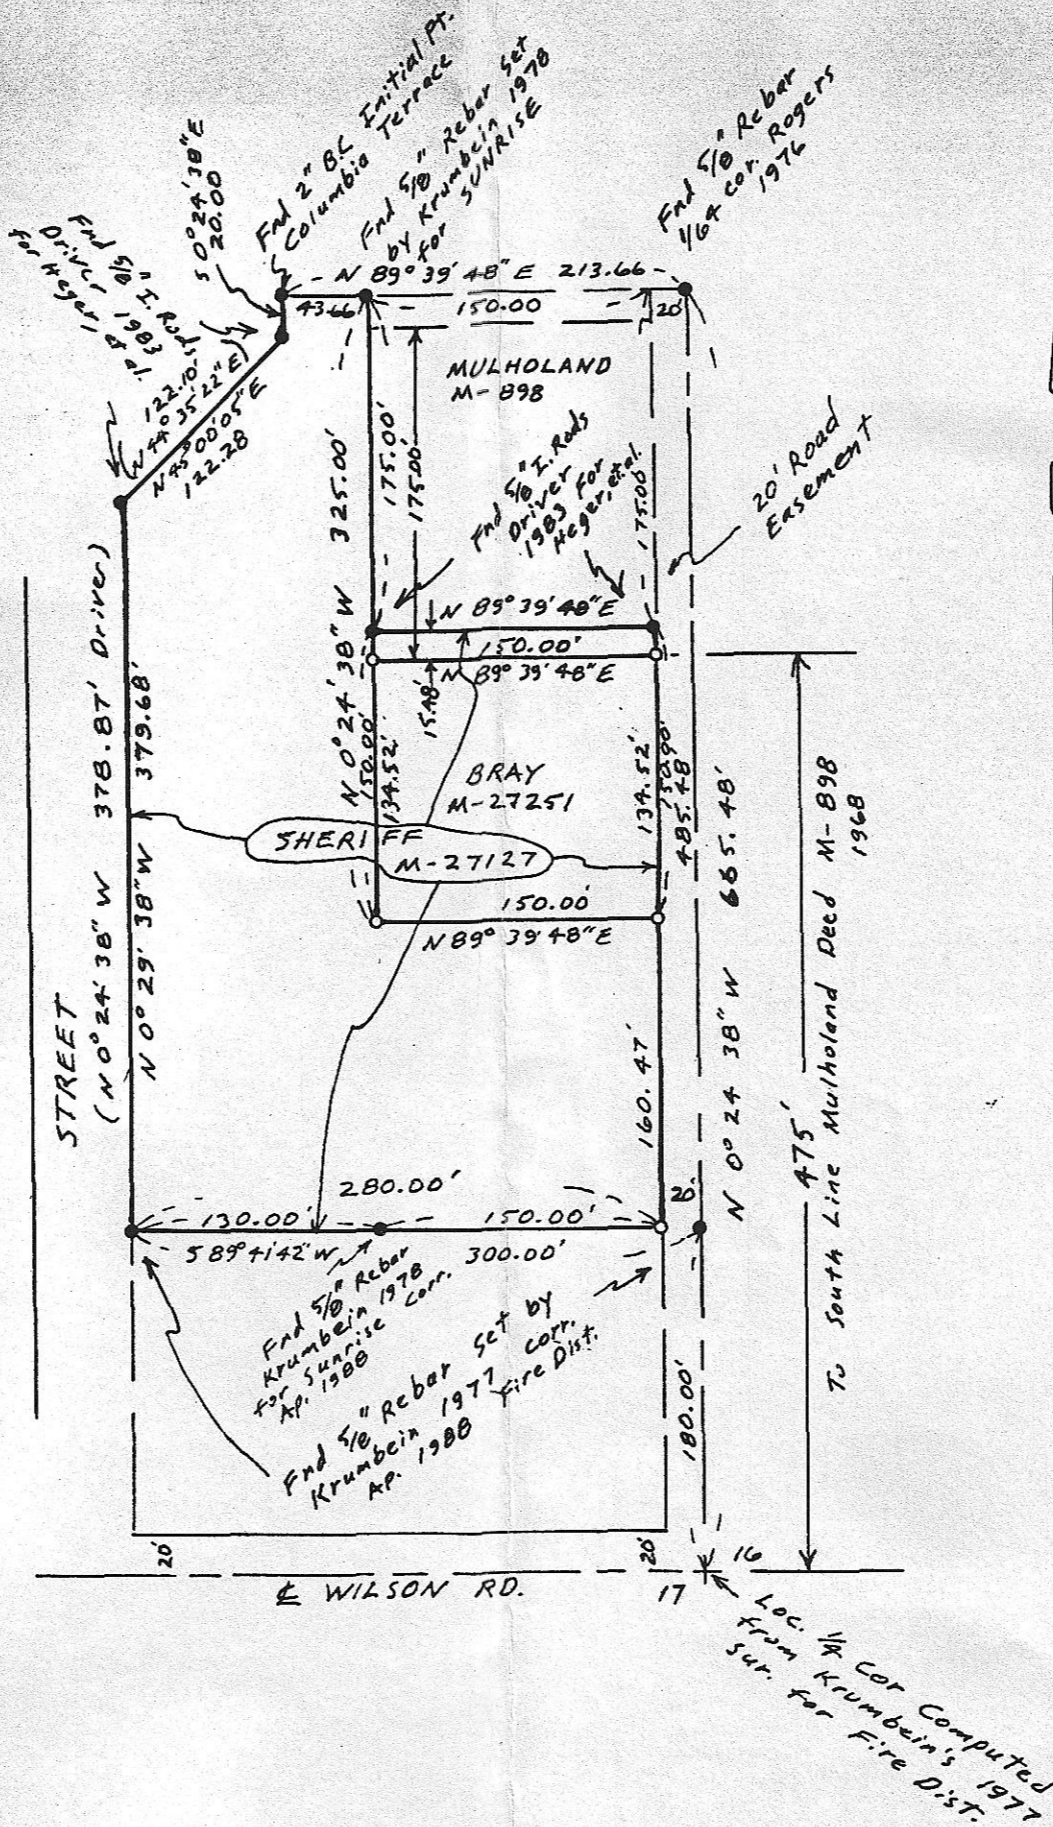 Fnd 2" B.C. Initial Pt.
Columbia Terrace
Fnd 5/8" Rebar Set
by Krumbein 1978
for SUNRISE
Fnd 5/8" Rebar
1/64 cor. Rogers
1976
S 0° 24' 38" E
20.00
Fnd 5/8" I. Rods
Driver 1983
for Heger, et al.
N 89° 39' 48" E 213.66
43.66
150.00
20'
122.10'
N 44° 35' 22" E
N 45° 00' 05" E
122.28
MULHOLAND
M-898
175.00'
175.00'
N 0° 24' 38" W 325.00'
Fnd 5/8" I. Rods
Driver
1983 for
Heger, et.al.
175.00'
20' Road
Easement
N 89° 39' 48" E
150.00'
N 89° 39' 48" E
15.48'
150.00'
134.52'
BRAY
M-27251
134.52'
150.00'
485.48'
SHERIFF
M-27127
150.00'
N 89° 39' 48" E
STREET
(N 0° 24' 38" W 378.87' Driver)
N 0° 29' 38" W 379.68'
160.47'
N 0° 24' 38" W 665.48'
475'
To South Line Mulholand Deed M-898
1968
280.00'
20'
130.00'
150.00'
S 89° 41' 42" W
300.00'
Fnd 5/8" Rebar
Krumbein 1978
for Sunrise Corr.
Ap. 1988
Fnd 5/8" Rebar Set by
Krumbein 1977 corr.
Ap. 1988 Fire Dist.
180.00'
20'
20'
16
17
℄ WILSON RD.
Loc. Cor Computed
from Krumbein's 1977
Sur. for Fire Dist.